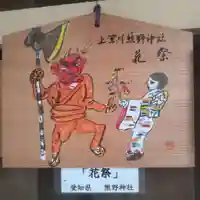 上黒川熊野神社
花祭
「花祭」
愛知県 熊野神社